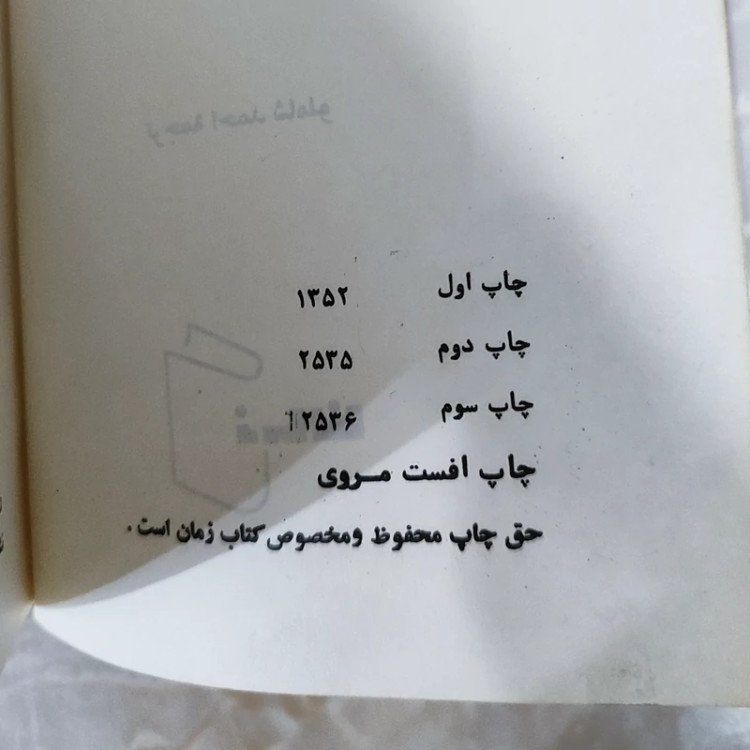 ترجمهٔ احمد شاملو
چاپ اول ۱۳۵۲
چاپ دوم ۲۵۳۵
چاپ سوم ۲۵۳۶
چاپ افست مروی
حق چاپ محفوظ ومخصوص کتاب زمان است.